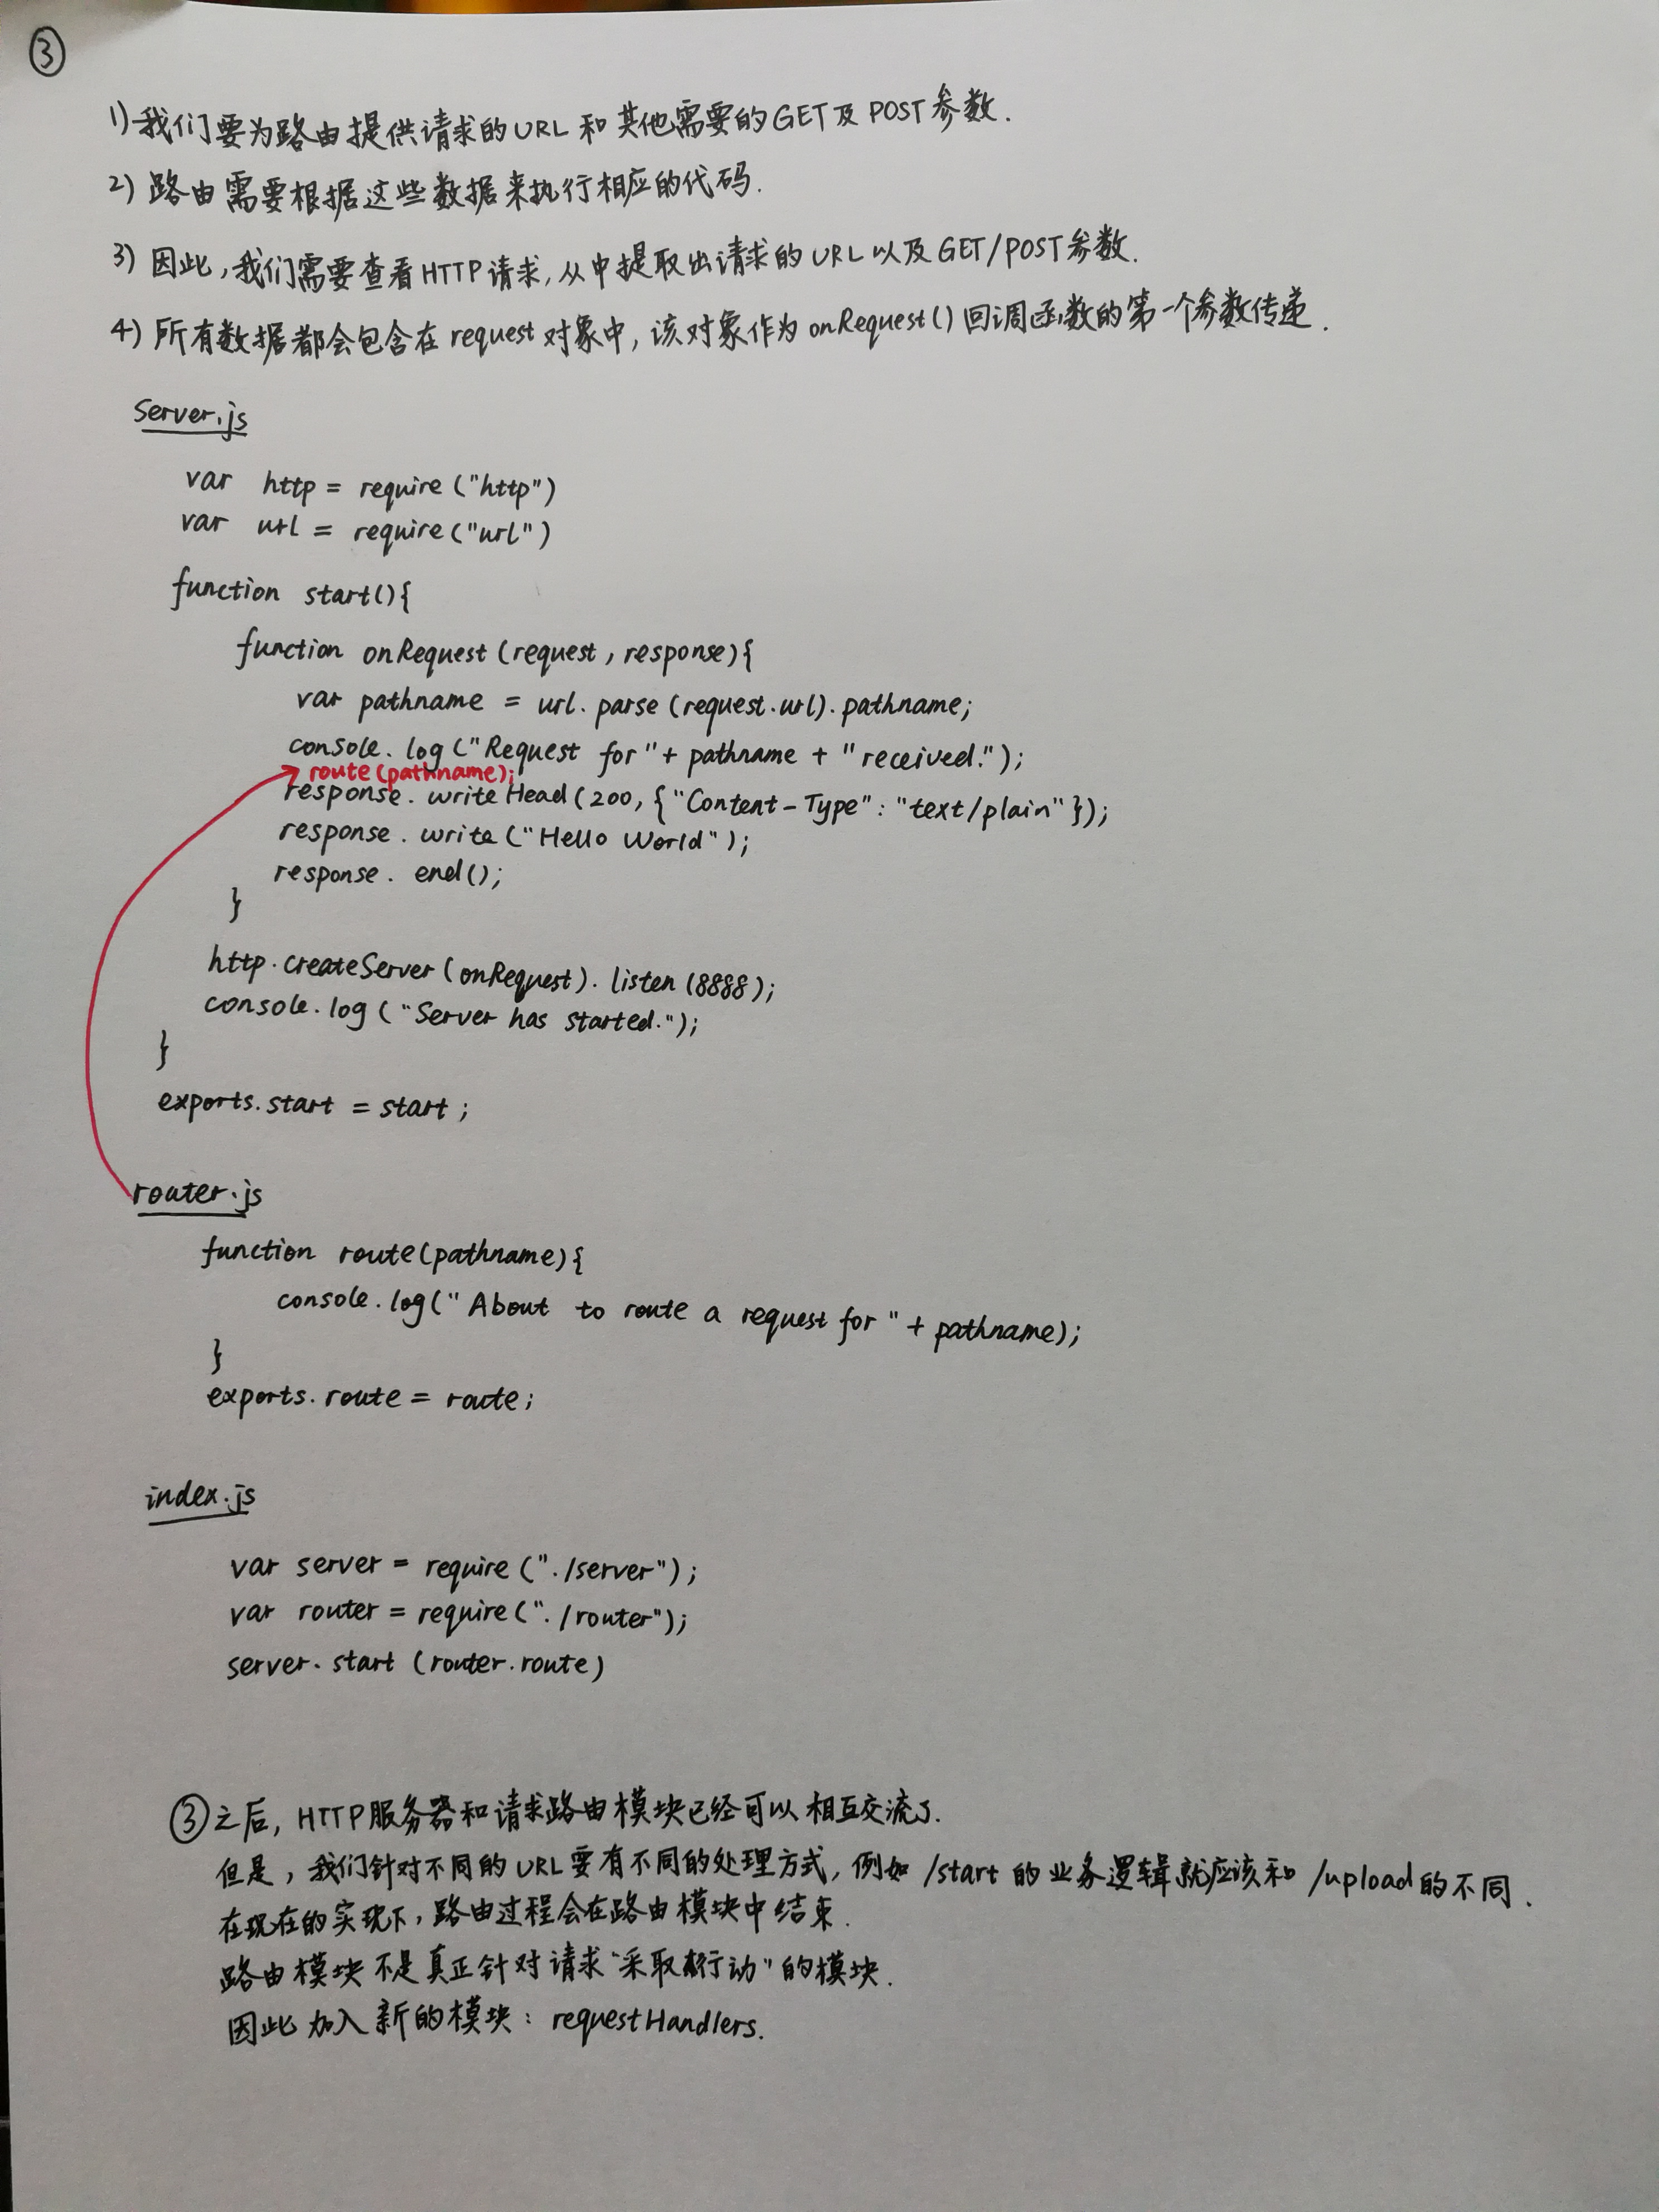 ③
1) 我们要为路由提供请求的URL和其他需要的GET及POST参数.
2) 路由需要根据这些数据来执行相应的代码.
3) 因此,我们需要查看HTTP请求,从中提取出请求的URL以及GET/POST参数.
4) 所有数据都会包含在request对象中,该对象作为onRequest()回调函数的第一个参数传递.
server.js
var http = require("http")
var url = require("url")
function start(){
function onRequest(request, response){
var pathname = url.parse(request.url).pathname;
console.log("Request for"+ pathname + "received.");
route(pathname);
response.writeHead(200, {"Content-Type": "text/plain"});
response.write("Hello World");
response.end();
}
http.createServer(onRequest).listen(8888);
console.log("Server has started.");
}
exports.start = start;
router.js
function route(pathname){
console.log("About to route a request for" + pathname);
}
exports.route = route;
index.js
var server = require("./server");
var router = require("./router");
server.start(router.route)
③之后, HTTP服务器和请求路由模块已经可以相互交流了.
但是,我们针对不同的URL要有不同的处理方式,例如/start的业务逻辑就应该和/upload的不同.
在现在的实现下,路由过程会在路由模块中结束.
路由模块不是真正针对请求"采取行动"的模块.
因此加入新的模块: requestHandlers.